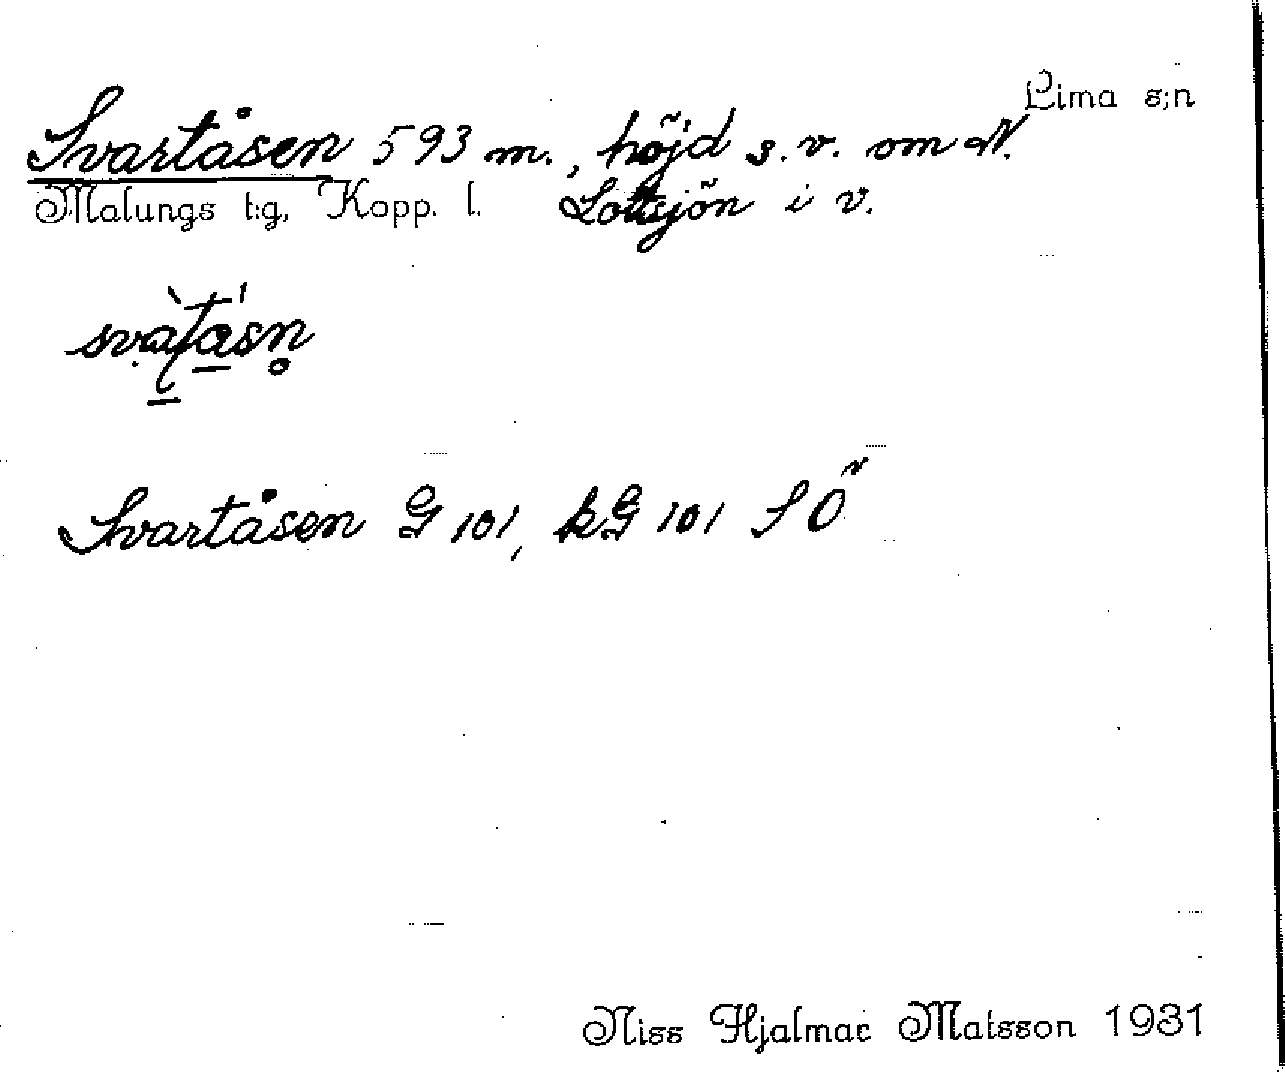 Lima s:n
Svartåsen 593 m., höjd s.v. om N.
Malungs t:g, Kopp. l. Lottsjön i v.
Svartåsen G 101, kG 101 S Ö
Niss Hjalmar Matsson 1931